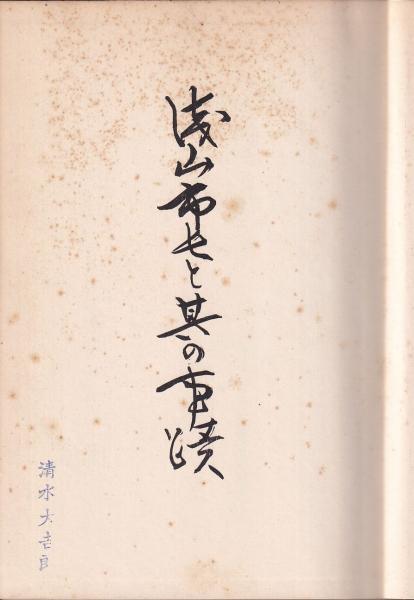 浅山市長と其の事蹟
清水大吉郎